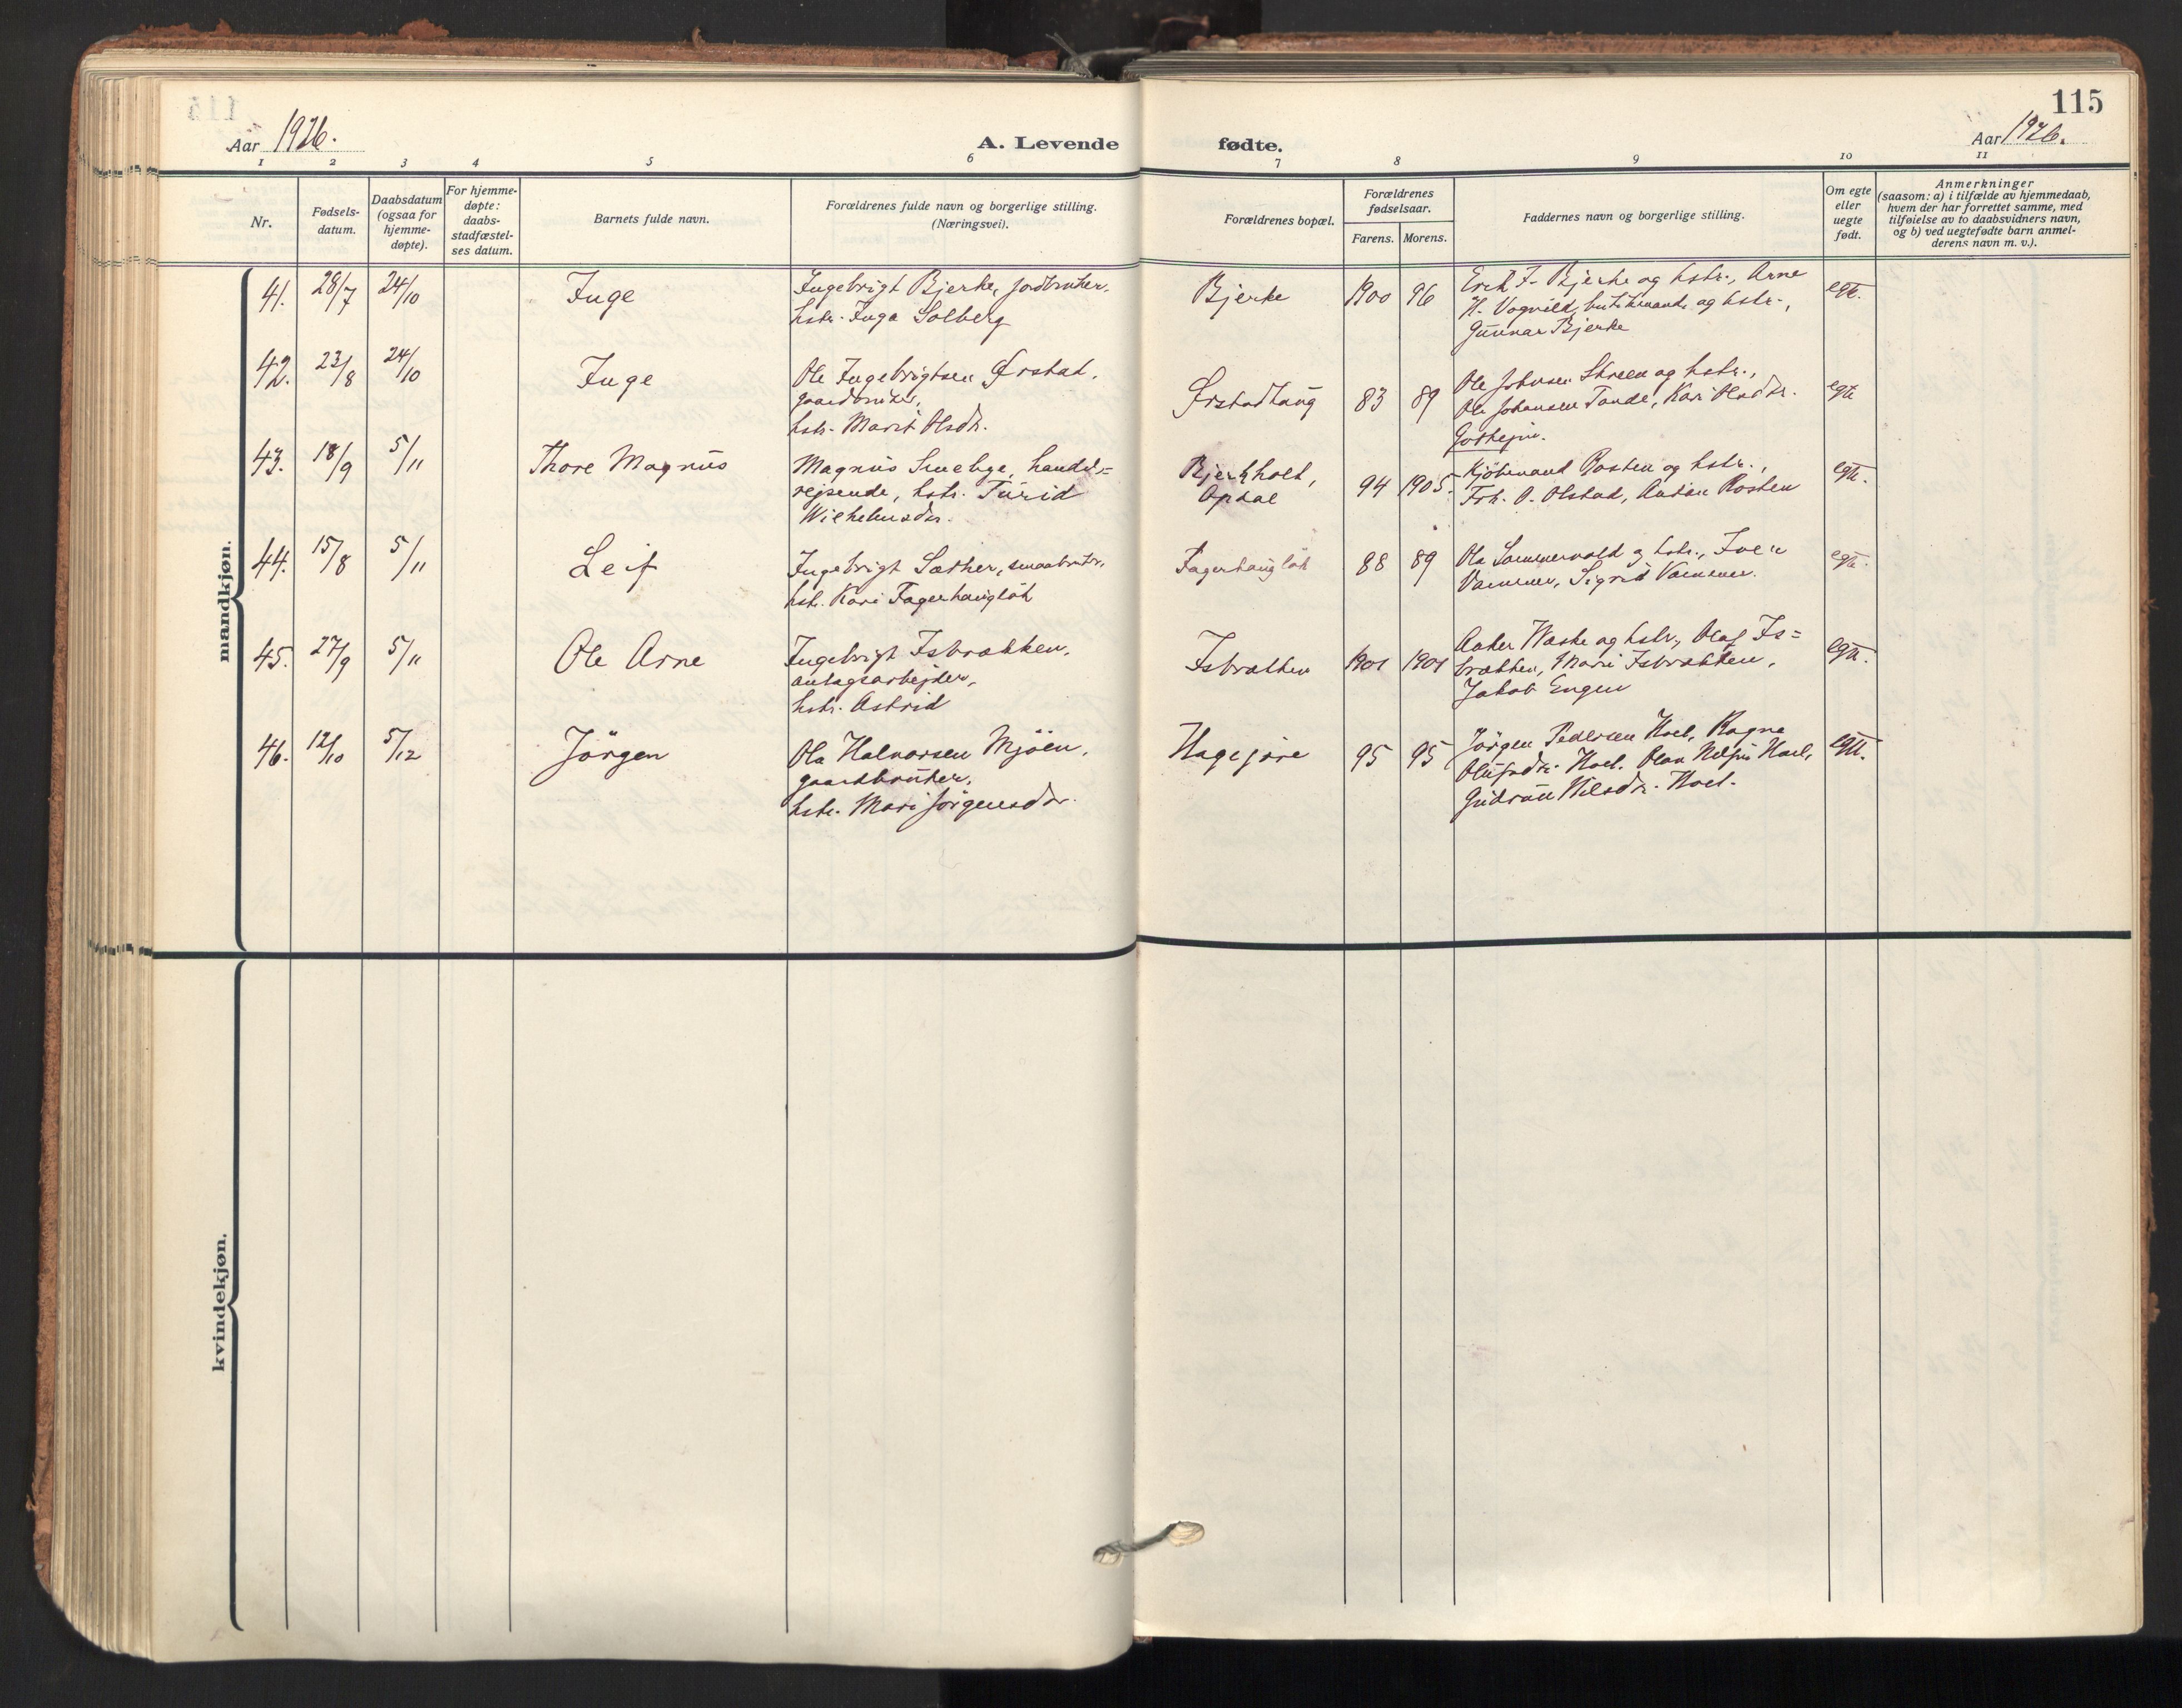 115
Aar 1926.
A. Levende fødte.
Aar 1926.
1 2 3 4 5 6 7 8 9 10 11
Nr.
Fødsels-
datum.
Daabsdatum
(ogsaa for
hjemme-
døpte).
For hjemme-
døpte:
daabs-
stadfæstel-
ses datum.
Barnets fulde navn.
Forældrenes fulde navn og borgerlige stilling.
(Næringsvei).
Forældrenes bopæl.
Forældrenes
fødselsaar.
Farens. Morens.
Faddernes navn og borgerlige stilling.
Om egte
eller
uegte
født.
Anmerkninger
(saasom: a) i tilfælde av hjemmedaab,
hvem der har forrettet samme, med
tilføielse av to daabsvidners navn,
og b) ved uegtefødte barn anmel-
derens navn m. v.).
mandkjøn.
41. 28/7 24/10 Inge
Ingebrigt Bjerke, jordbruker,
hstr. Inga Solberg
Bjerke 1900 96
Erik I. Bjerke og hstr., Arne
H. Vognild, og hstr.,
Gunnar Bjerke
egte.
42. 23/8 24/10 Inge
Ole Ingebrigtsen Ørstad,
gaardbruker,
hstr. Marit Olsdr.
Ørstadhaug 83 89
Ole Johnsen Skreen og hstr.,
Ole Johansen Tande, Kari Olsdtr.
egte
43. 18/9 5/11 Thore Magnus
Magnus Smebye, handels=
rejsende, hstr. Turid
Wilhelmsdr.
Bjerkholt,
Opdal
94 1905.
Kjöbmand Rosten og hstr.,
Frk. O. Olstad, Rosten
egte.
44. 15/8 5/11 Leif
Ingebrigt Sæther, smaabruker,
hstr. Kari Fagerhaugløk
Fagerhaugløk 88 89
Ola Sammervold og hstr., Iver
Vammer, Sigrid Vammer.
egte.
45. 27/9 5/11 Ole Arne
Ingebrigt Isbrækken,
anlægsarbejder,
hstr. Astrid
Isbrækken 1901 1901
og hstr., Olaf Is=
brækken, Mari Isbrækken,
Jakob Engen
egte.
46. 12/10 5/12 Jörgen
Ola Halvorsen Mjöen,
gaardbruker,
hstr. Mari Jörgensdr.
Hagejore 95 95
Jörgen Pedersen Hoel, Ragne
Olufsdtr. Hoel. Hoel,
Gudrun Nilsdtr. Hoel.
egte.
kvindekjøn.